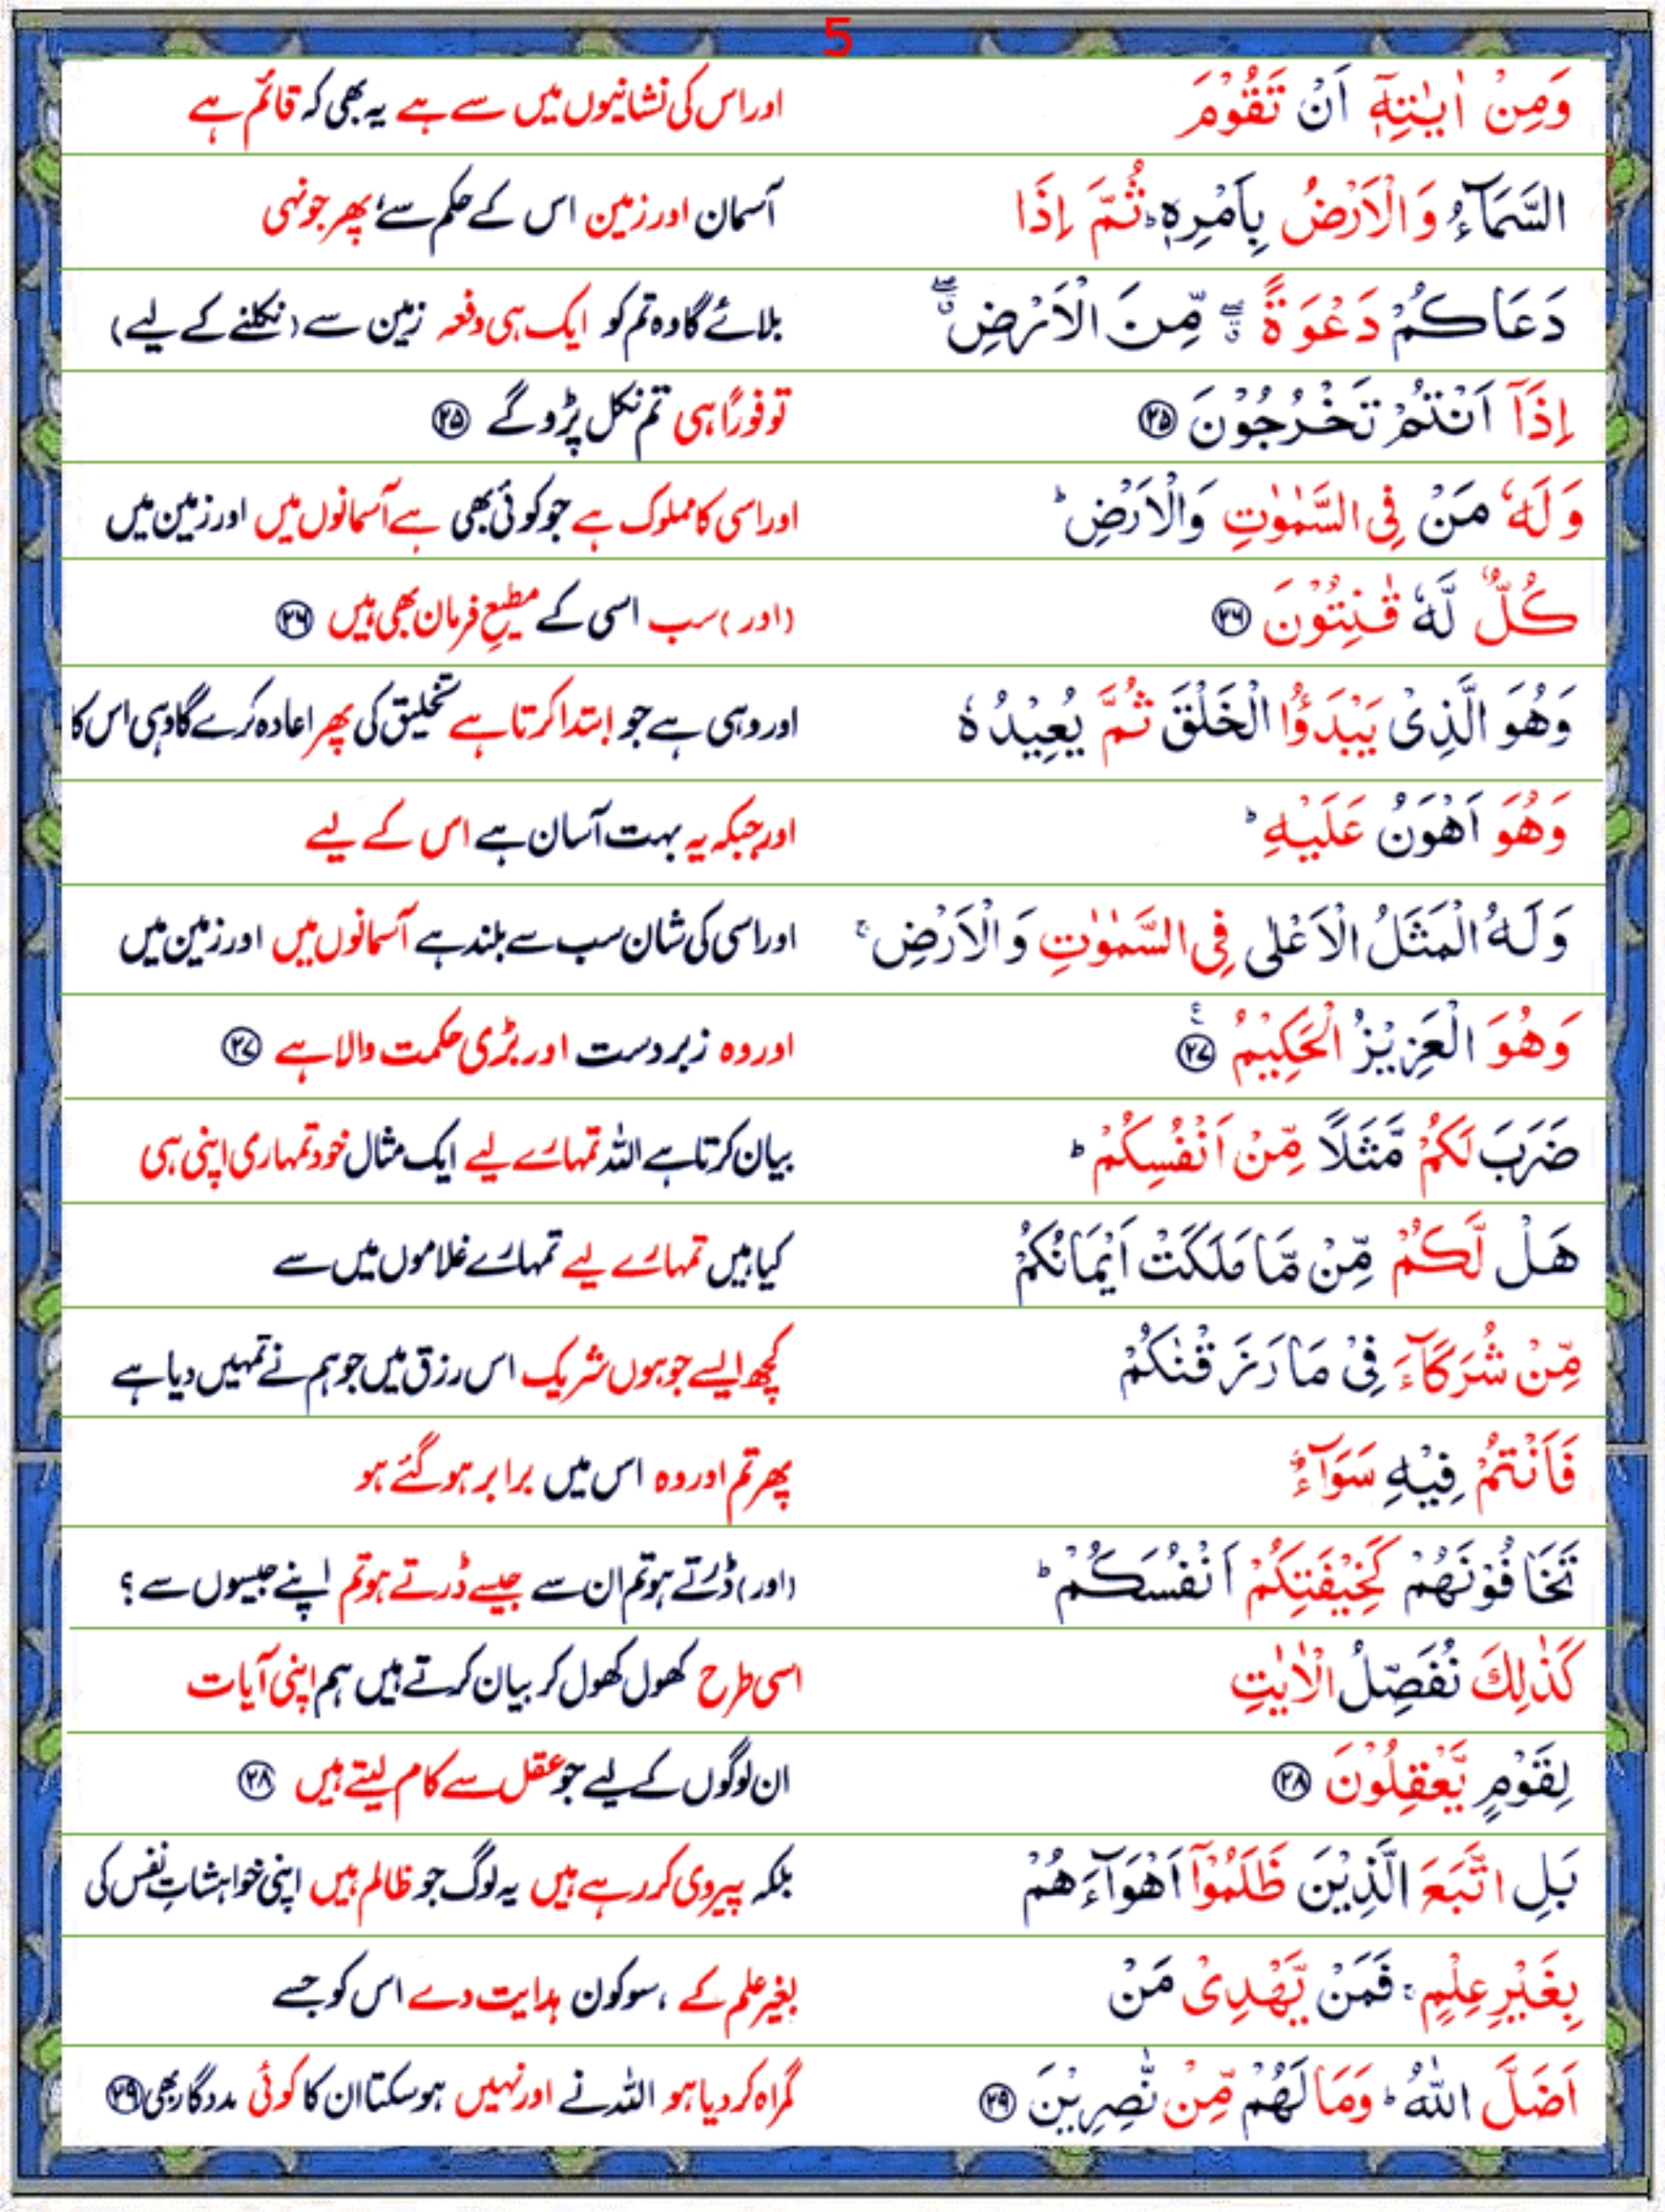 5
وَمِنْ اٰيٰتِهٖٓ اَنْ تَقُوْمَ اور اس کی نشانیوں میں سے ہے یہ بھی کہ قائم ہے
السَّمَآءُ وَالْاَرْضُ بِاَمْرِهٖ ؕ ثُمَّ اِذَا آسمان اور زمین اس کے حکم سے، پھر جونہی
دَعَاكُمْ دَعْوَةً ۖۗ مِّنَ الْاَرْضِ ۖۗ بلائے گا وہ تم کو ایک ہی دفعہ زمین سے (نکلنے کے لیے)
اِذَآ اَنْتُمْ تَخْرُجُوْنَ ۲۵ تو فوراً ہی تم نکل پڑو گے ۲۵
وَلَهٗ مَنْ فِى السَّمٰوٰتِ وَالْاَرْضِ ؕ اور اسی کا مملوک ہے جو کوئی بھی ہے آسمانوں میں اور زمین میں
كُلٌّ لَّهٗ قٰنِتُوْنَ ۲۶ (اور) سب اسی کے مطیعِ فرمان بھی ہیں ۲۶
وَهُوَ الَّذِىْ يَبْدَؤُا الْخَلْقَ ثُمَّ يُعِيْدُهٗ اور وہی ہے جو ابتدا کرتا ہے تخلیق کی پھر اعادہ کرے گا وہی اس کا
وَهُوَ اَهْوَنُ عَلَيْهِ ؕ اور جبکہ یہ بہت آسان ہے اس کے لیے
وَلَهُ الْمَثَلُ الْاَعْلٰى فِى السَّمٰوٰتِ وَالْاَرْضِ ۚ اور اسی کی شان سب سے بلند ہے آسمانوں میں اور زمین میں
وَهُوَ الْعَزِيْزُ الْحَكِيْمُ ۲۷ اور وہ زبردست اور بڑی حکمت والا ہے ۲۷
ضَرَبَ لَكُمْ مَّثَلًا مِّنْ اَنْفُسِكُمْ ؕ بیان کرتا ہے اللہ تمہارے لیے ایک مثال خود تمہاری اپنی ہی
هَلْ لَّكُمْ مِّنْ مَّا مَلَكَتْ اَيْمَانُكُمْ کیا ہیں تمہارے لیے تمہارے غلاموں میں سے
مِّنْ شُرَكَآءَ فِىْ مَا رَزَقْنٰكُمْ کچھ ایسے جو ہوں شریک اس رزق میں جو ہم نے تمہیں دیا ہے
فَاَنْتُمْ فِيْهِ سَوَآءٌ پھر تم اور وہ اس میں برابر ہو گئے ہو
تَخَافُوْنَهُمْ كَخِيْفَتِكُمْ اَنْفُسَكُمْ ؕ (اور) ڈرتے ہو تم ان سے جیسے ڈرتے ہو تم اپنے جیسوں سے؟
كَذٰلِكَ نُفَصِّلُ الْاٰيٰتِ اسی طرح کھول کھول کر بیان کرتے ہیں ہم اپنی آیات
لِقَوْمٍ يَّعْقِلُوْنَ ۲۸ ان لوگوں کے لیے جو عقل سے کام لیتے ہیں ۲۸
بَلِ اتَّبَعَ الَّذِيْنَ ظَلَمُوْٓا اَهْوَآءَهُمْ بلکہ پیروی کر رہے ہیں یہ لوگ جو ظالم ہیں اپنی خواہشاتِ نفس کی
بِغَيْرِ عِلْمٍ ۚ فَمَنْ يَّهْدِىْ مَنْ بغیر علم کے، سو کون ہدایت دے اس کو جسے
اَضَلَّ اللّٰهُ ؕ وَمَا لَهُمْ مِّنْ نّٰصِرِيْنَ ۲۹ گمراہ کر دیا ہو اللہ نے اور نہیں ہو سکتا ان کا کوئی مددگار بھی ۲۹